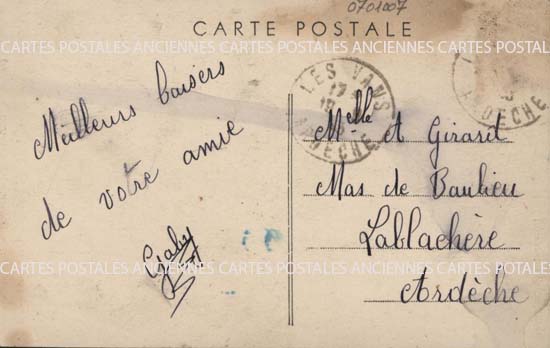 0701007
CARTE POSTALE
CARTES POSTALES ANCIENNES CARTES POSTALES ANCIENNES CARTES POSTALES ANCIENNES
LES VANS
17
18
ARDÈCHE
ARDÈCHE
Meilleurs baisers
de votre amie
Gaby
Melle A Girard
Mas de Baulieu
Lablachère
Ardèche
CARTES POSTALES ANCIENNES CARTES POSTALES ANCIENNES CARTES POSTALES ANCIENNES